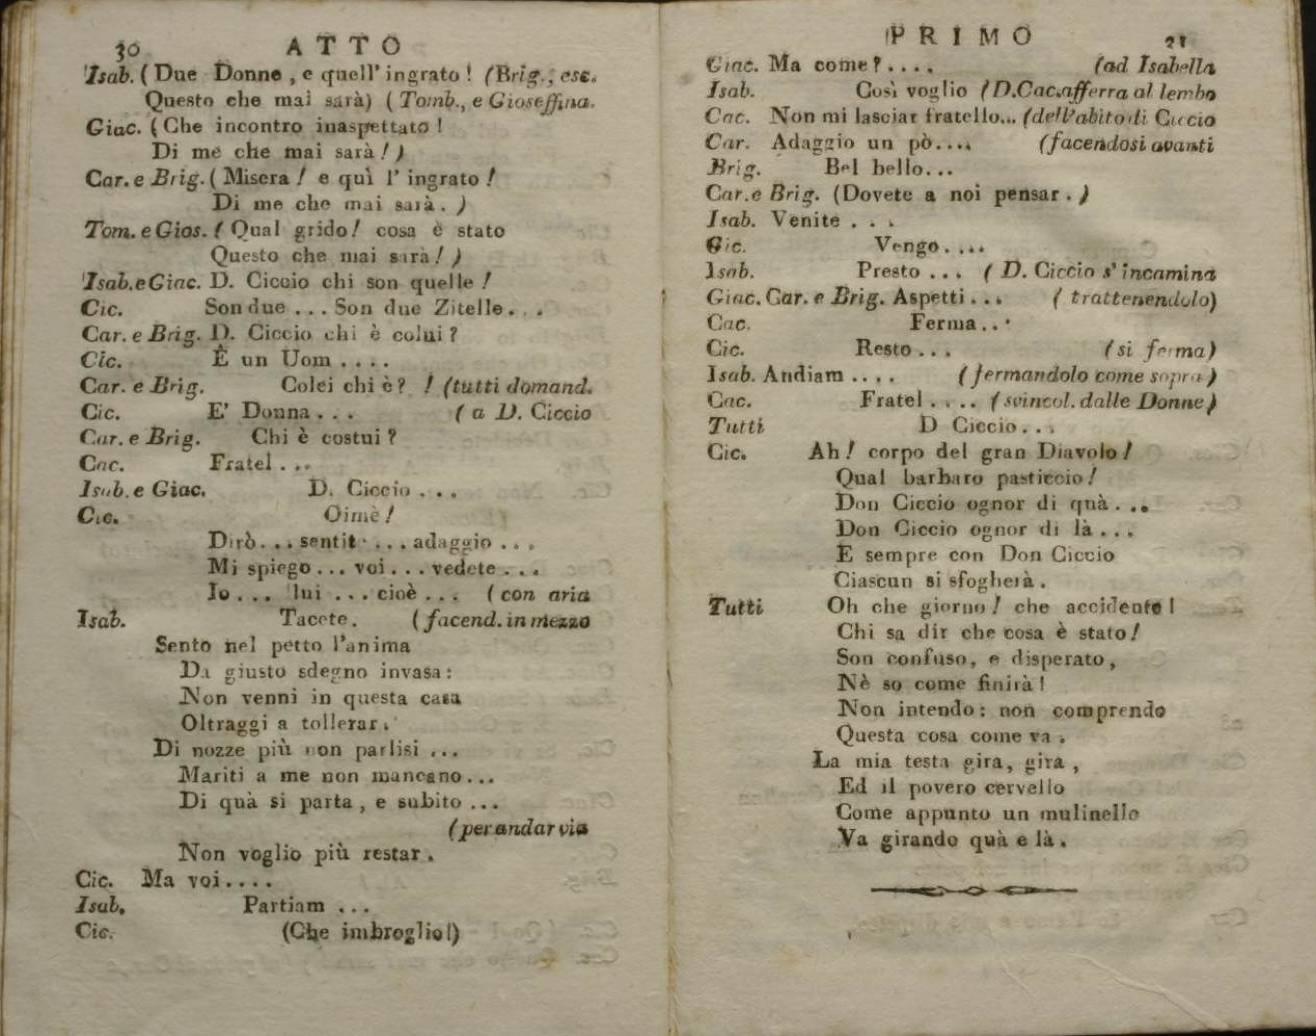 30 ATTO
Isab. (Due Donne, e quell' ingrato! (Brig., esc.
Questo che mai sarà) (Tomb., e Gioseffina.
Giac. (Che incontro inaspettato!
Di me che mai sarà!)
Car. e Brig. (Misera! e quì l' ingrato!
Di me che mai sarà.)
Tom. e Gios. (Qual grido! cosa è stato
Questo che mai sarà!)
Isab. e Giac. D. Ciccio chi son quelle!
Cic. Son due ... Son due Zitelle...
Car. e Brig. D. Ciccio chi è colui?
Cic. È un Uom ....
Car. e Brig. Colei chi è? ! (tutti domand.
Cic. E' Donna... (a D. Ciccio
Car. e Brig. Chi è costui?
Cac. Fratel ...
Isab. e Giac. D. Ciccio ...
Cic. Oimè!
Dirò... sentit ... adaggio ...
Mi spiego ... voi ... vedete ...
Io ... lui ... cioè ... (con aria
Isab. Tacete. (facend. in mezzo
Sento nel petto l'anima
Da giusto sdegno invasa:
Non venni in questa casa
Oltraggi a tollerar.
Di nozze più non parlisi ...
Mariti a me non mancano...
Di quà si parta, e subito ...
(per andar via
Non voglio più restar.
Cic. Ma voi....
Isab. Partiam ...
Cic. (Che imbroglio!)
PRIMO 31
Giac. Ma come?.... (ad Isabella
Isab. Così voglio (D. Cac. afferra al lembo
Cac. Non mi lasciar fratello... (dell'abito di Ciccio
Car. Adaggio un pò.... (facendosi avanti
Brig. Bel bello...
Car. e Brig. (Dovete a noi pensar.)
Isab. Venite ...
Cic. Vengo....
Isab. Presto ... (D. Ciccio s' incamina
Giac. Car. e Brig. Aspetti... (trattenendolo)
Cac. Ferma...
Cic. Resto... (si ferma)
Isab. Andiam .... (fermandolo come sopra)
Cac. Fratel .... (svincol. dalle Donne)
Tutti D Ciccio...
Cic. Ah! corpo del gran Diavolo!
Qual barbaro pasticcio!
Don Ciccio ognor di quà...
Don Ciccio ognor di là...
E sempre con Don Ciccio
Ciascun si sfogherà.
Tutti Oh che giorno! che accidente!
Chi sa dir che cosa è stato!
Son confuso, e disperato,
Nè so come finirà!
Non intendo: non comprendo
Questa cosa come va.
La mia testa gira, gira,
Ed il povero cervello
Come appunto un mulinello
Va girando quà e là.